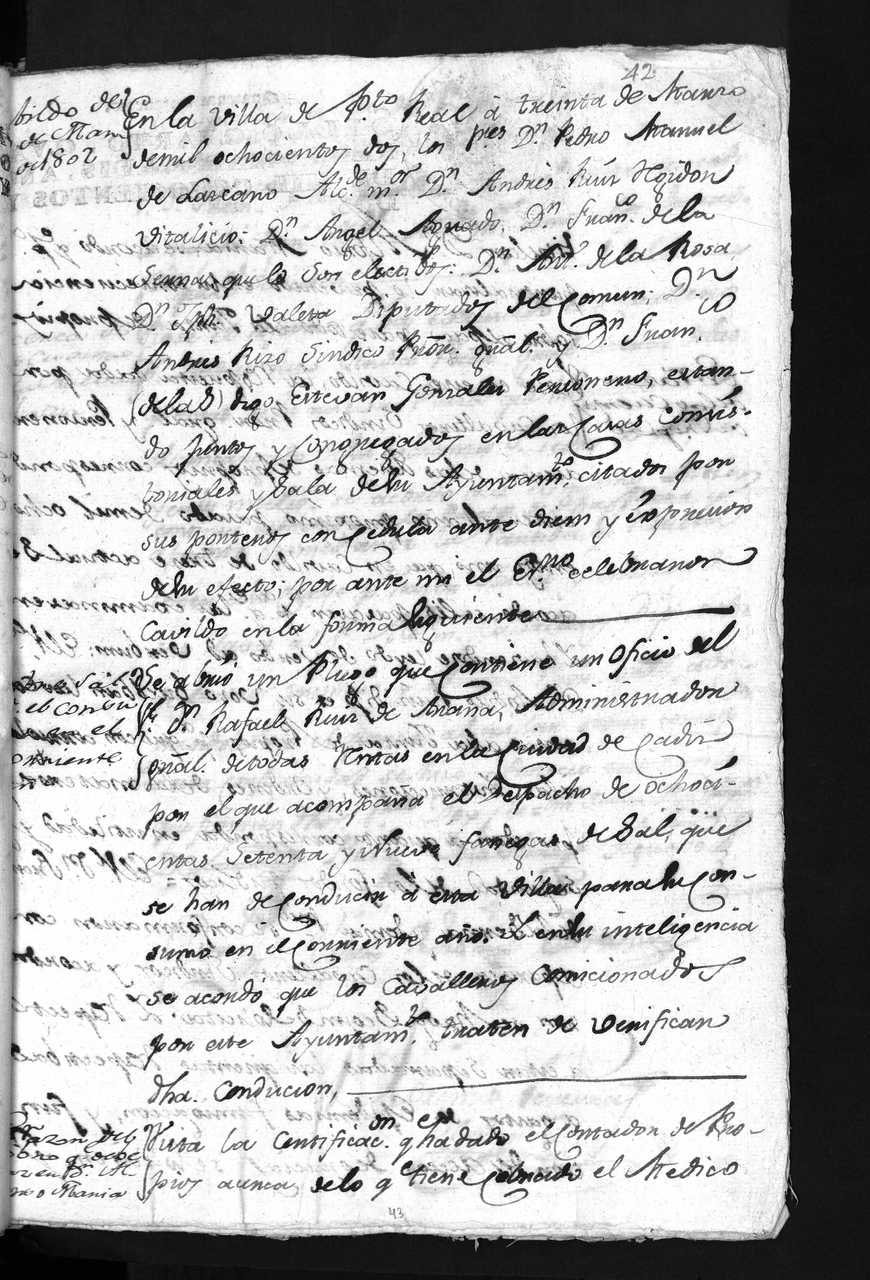 42
bildo de
de Marzo
de 1802
En la Villa de Pto. Real á treinta de Marzo
demil ochocientos dos, los Sres. Dn. Pedro Manuel
de Lazcano Alcde. mor. Dn. Andrés Ruiz Rejidor
Vitalicio; Dn. Angel Aguado, Dn. Franco. de la
Serna, que lo son electibos; Dn. Anto. de la Rosa,
Dn. Jph. Valera Diputados del Comun; Dn.
Andres Rizo Sindico Prõr. gral. y Dn. Franco
(delab) digo Estevan Gonzales Personero, estan-
do juntos y Congregados en las Casas Consis-
toriales y Sala de su Ayuntamto. citados por
sus porteros con Cedula ante diem y expresion
desu efecto; por ante mi el Esno. celebraron
Cavildo en la forma siguiente
Se abrió un Pliego que Contiene un Oficio del
Sr. Dn. Rafael Ruiz de Arana, Administrador
gral. de todas Rentas en la Ciudad de Cadiz
por el que acompaña el Despacho de ochoci-
entas Setenta y Nueve fanegas de Sal, que
se han de Conducir á esta Villa para su Con-
sumo en el Corriente año. Y en su inteligencia
se acordó que los Cavalleros Comicionados
por este Ayuntamto. traten de Verificar
dha. Conducion,
Vista la Certificacon. qe. ha dado el Contador de Pro-
pios acerca, delo qe. tiene Cobrado el Medico
43